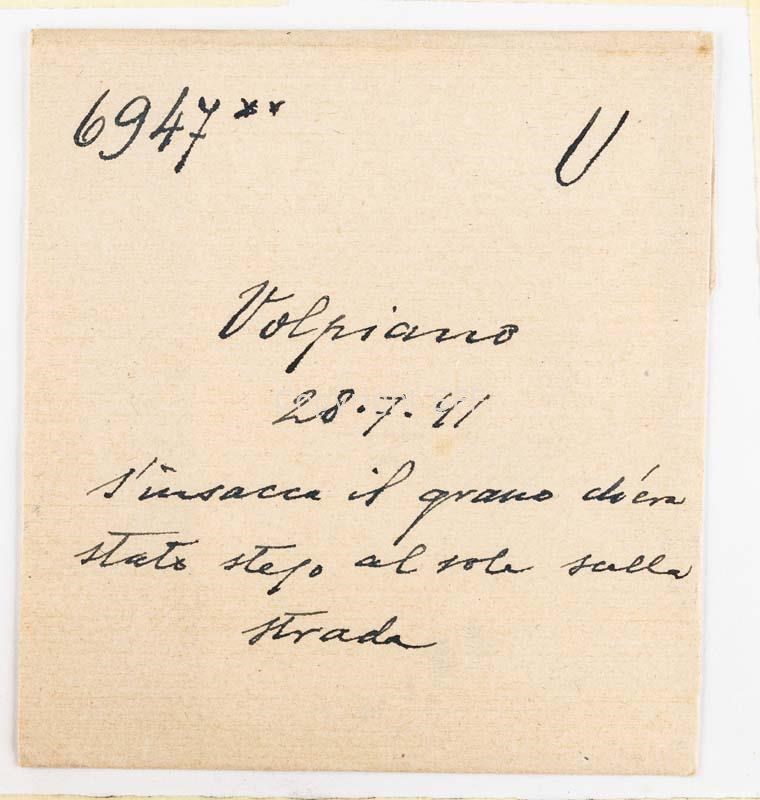 6947** U
Volpiano
28.7.41
s'insacca il grano ch'era
stato steso al sole sulla
strada